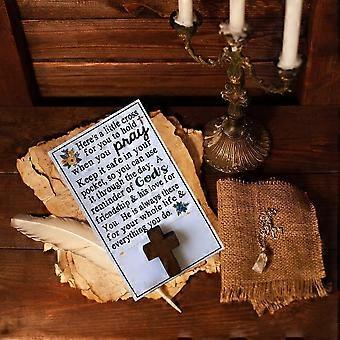 Here's a little cross
for you to hold
when you pray
Keep it safe in your
pocket, so you can use
it through the day. A
reminder of God's
friendship & his love for
You. He is always there
for your whole life &
everything you do.